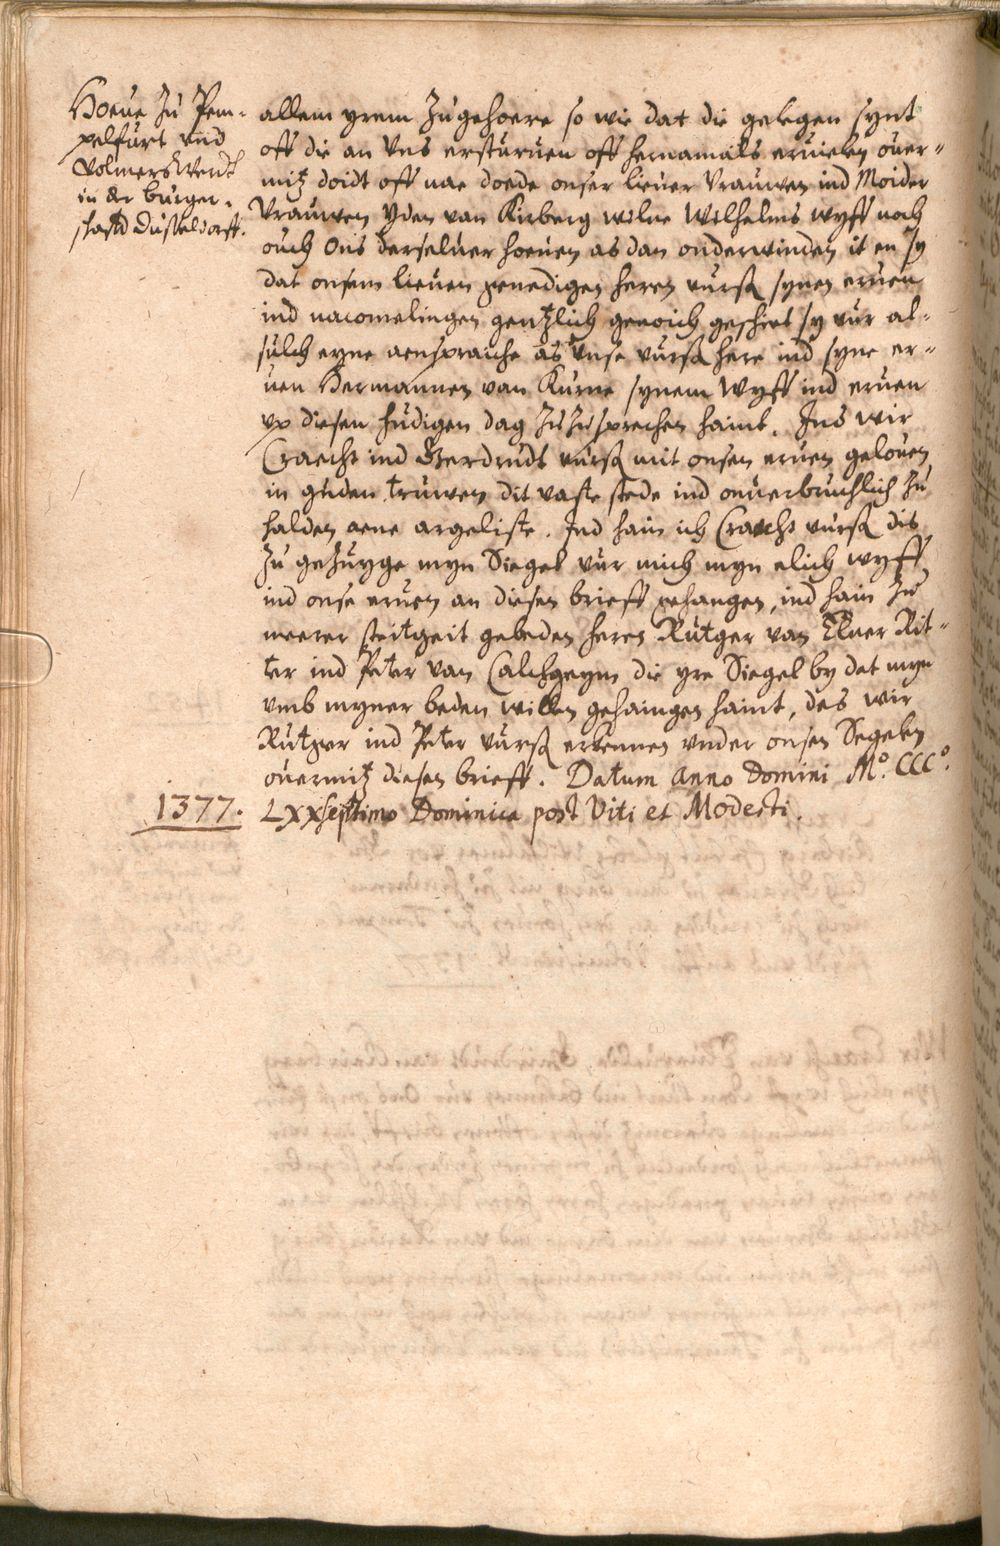 Hoeue zu Pem-
pelfurt vnd
Volmerswerdt
in der burger-
schafft Dusseldorff.
allem yrem zugehoere so wie dat die gelegen synt
off die an vns ersturuen off hernamails eruielen ouer-
mitz doidt off nae doede onser lieuer vrauwen ind Moider
Vrauwen Yden van Kirberg wilne Wilhelms wyff noch
ouch ons derseluer hoeuen as dan onderwinden it en sy
dat onsem lieuen genedigen heren vurß synen eruen
ind nacomelingen gentzlich genoich geschiet sy vur al-
sulch eyne aenspraiche as vnse vurß here ind syne er-
uen Hermannen van Kurne synem wyff ind eruen
vp diesen hudigen dag zuzusprechen haint. Ind wir
Craecht ind Gerdrudt vurß mit onsen eruen gelouen
in guden truwen dit vaste stede ind onuerbruchlich zu
halden aene argeliste. Ind hain ich Craecht vurß dis
zu gezuyge myn Siegel vur mich myn elich wyff
ind onse eruen an diesen brieff gehangen, ind hain zu
meerer steitgeit gebeden heren Rutger van Elner Rit-
ter ind Peter van Calchgeym die yre Siegel by dat myn
vmb myner beden willen gehaingen haint, des wir
Rutger ind Peter vurß erkennen vnder onsen Segelen
ouermitz diesen brieff. Datum Anno Domini M.º CCCº.
1377. LXXseptimo Dominica post Viti et Modesti.